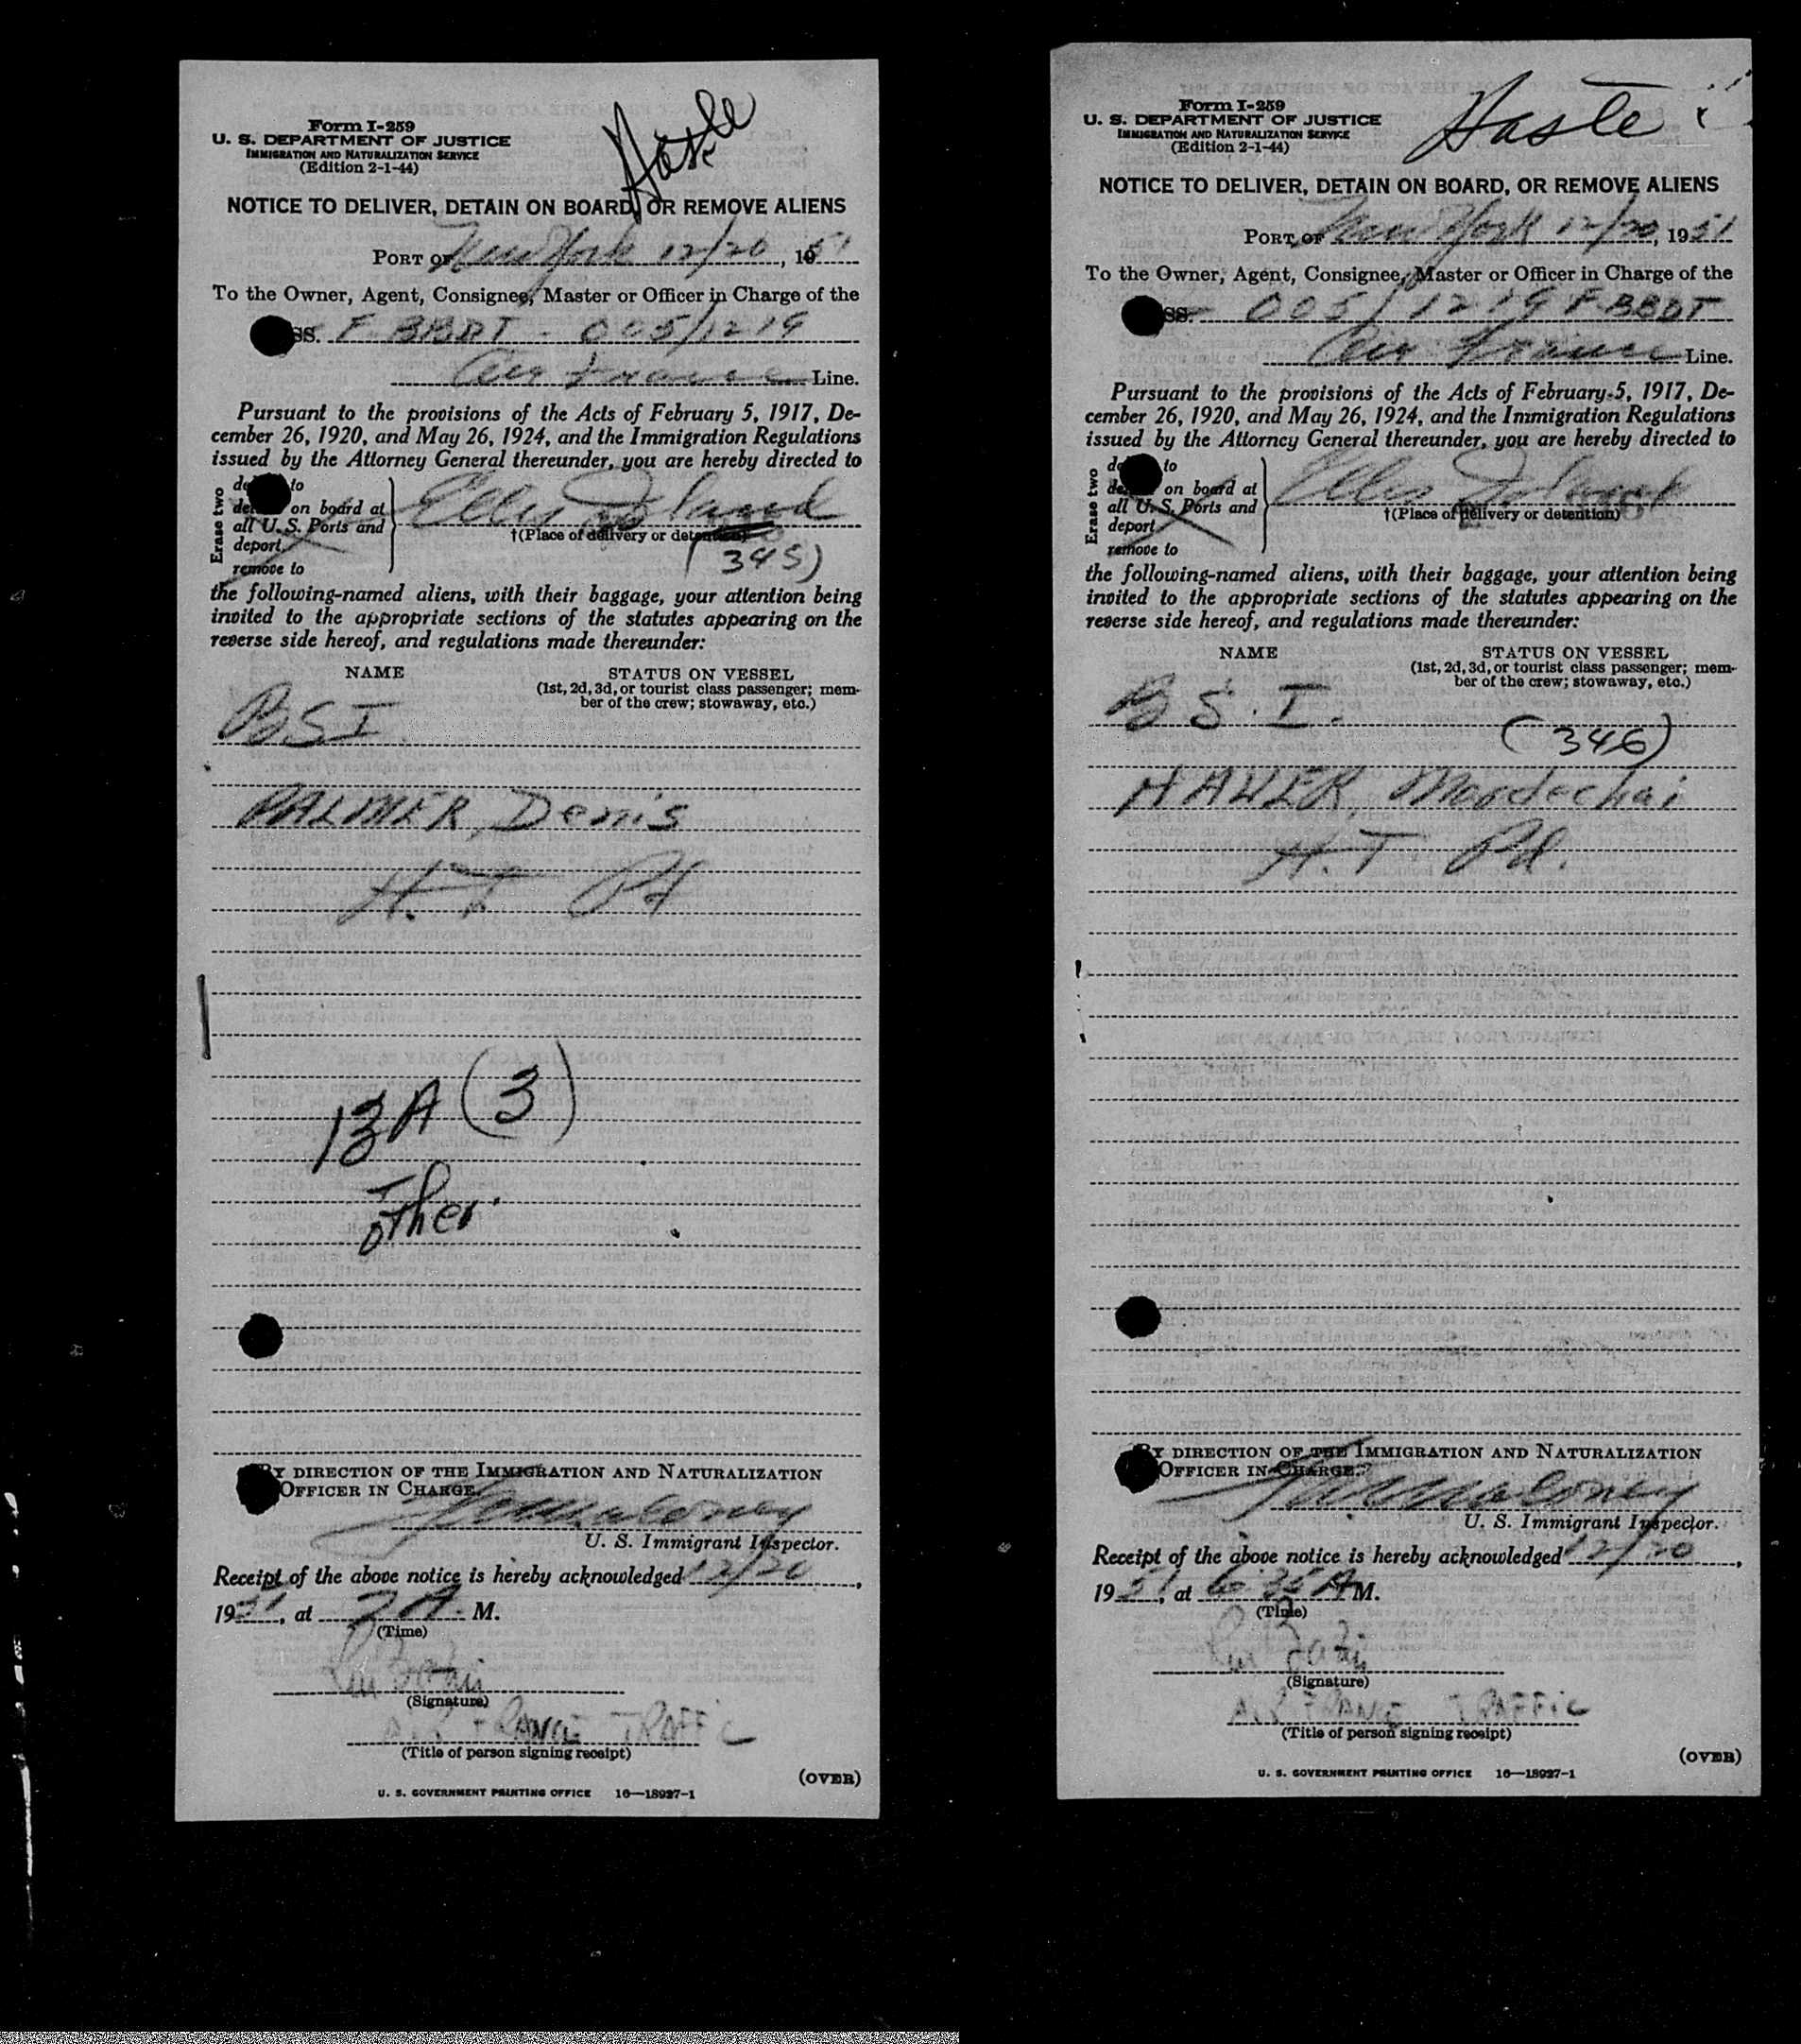 Form I-259
U. S. DEPARTMENT OF JUSTICE
IMMIGRATION AND NATURALIZATION SERVICE
(Edition 2-1-44)
Haste
NOTICE TO DELIVER, DETAIN ON BOARD, OR REMOVE ALIENS
PORT OF New York 12/20, 1951
To the Owner, Agent, Consignee, Master or Officer in Charge of the
SS. F. BBDT - 005/1219
Air France Line.
Pursuant to the provisions of the Acts of February 5, 1917, De-
cember 26, 1920, and May 26, 1924, and the Immigration Regulations
issued by the Attorney General thereunder, you are hereby directed to
Erase two
to
on board at
all U. S. Ports and
deport
remove to
Ellis Island
†(Place of delivery or detention)
(345)
the following-named aliens, with their baggage, your attention being
invited to the appropriate sections of the statutes appearing on the
reverse side hereof, and regulations made thereunder:
NAME
STATUS ON VESSEL
(1st, 2d, 3d, or tourist class passenger; mem-
ber of the crew; stowaway, etc.)
B.S.I.
PALMER, Denis
H. T. Pd
13A (3)
other.
BY DIRECTION OF THE IMMIGRATION AND NATURALIZATION
OFFICER IN CHARGE.
U. S. Immigrant Inspector.
Receipt of the above notice is hereby acknowledged 12/20,
1951, at 7 A. M.
(Time)
(Signature)
AIR FRANCE TRAFFIC
(Title of person signing receipt)
(OVER)
U. S. GOVERNMENT PRINTING OFFICE 16—18927-1
Form I-259
U. S. DEPARTMENT OF JUSTICE
IMMIGRATION AND NATURALIZATION SERVICE
(Edition 2-1-44)
Haste
NOTICE TO DELIVER, DETAIN ON BOARD, OR REMOVE ALIENS
PORT OF New York 12/20, 1951
To the Owner, Agent, Consignee, Master or Officer in Charge of the
SS. 005/1219 F-BBDT
Air France Line.
Pursuant to the provisions of the Acts of February 5, 1917, De-
cember 26, 1920, and May 26, 1924, and the Immigration Regulations
issued by the Attorney General thereunder, you are hereby directed to
Erase two
to
on board at
all U. S. Ports and
deport
remove to
Ellis Island
†(Place of delivery or detention)
the following-named aliens, with their baggage, your attention being
invited to the appropriate sections of the statutes appearing on the
reverse side hereof, and regulations made thereunder:
NAME
STATUS ON VESSEL
(1st, 2d, 3d, or tourist class passenger; mem-
ber of the crew; stowaway, etc.)
B.S.I.
(346)
Mordechai
H. T Pd.
BY DIRECTION OF THE IMMIGRATION AND NATURALIZATION
OFFICER IN CHARGE.
U. S. Immigrant Inspector.
Receipt of the above notice is hereby acknowledged 12/20,
1951, at 6:35 A M.
(Time)
(Signature)
AIR FRANCE TRAFFIC
(Title of person signing receipt)
(OVER)
U. S. GOVERNMENT PRINTING OFFICE 16—18927-1